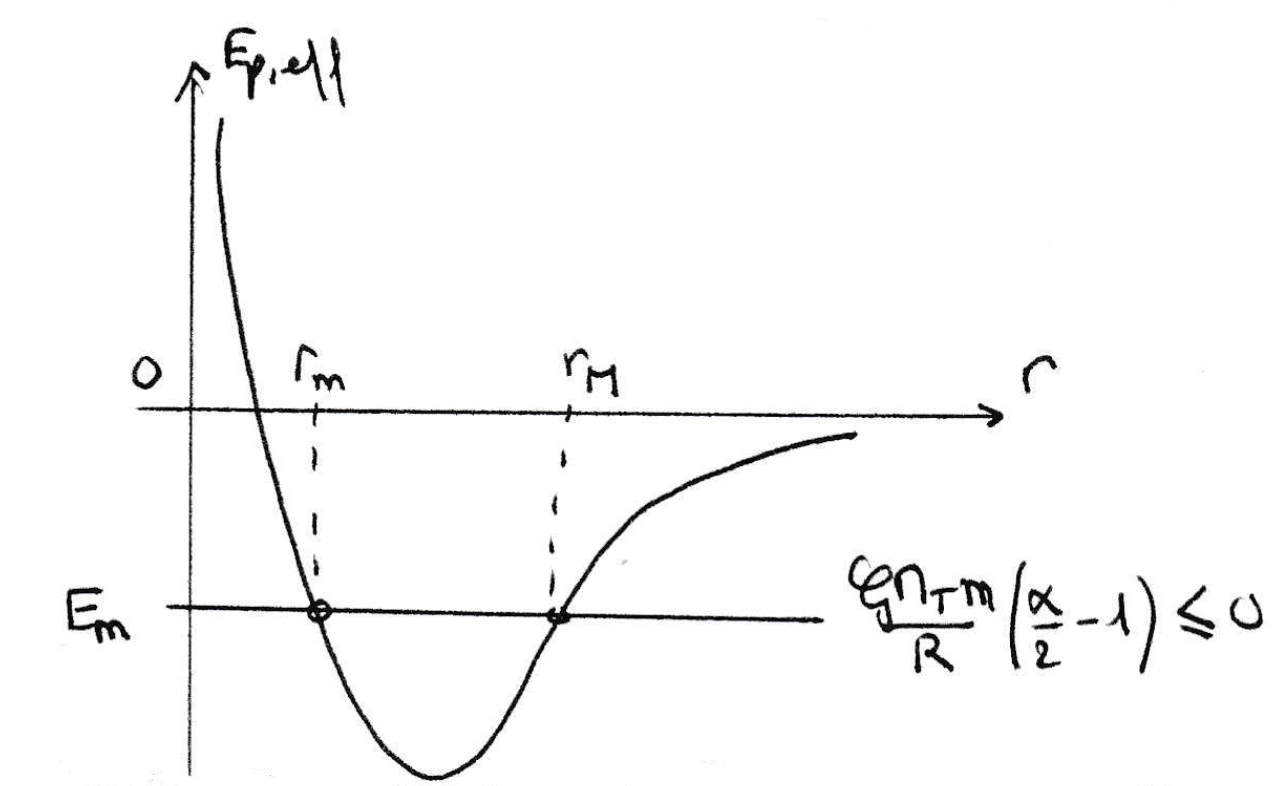 E_p,eff
0 r_m r_M r
E_m
𝒢M_T m/R (α/2 - 1) ≤ 0